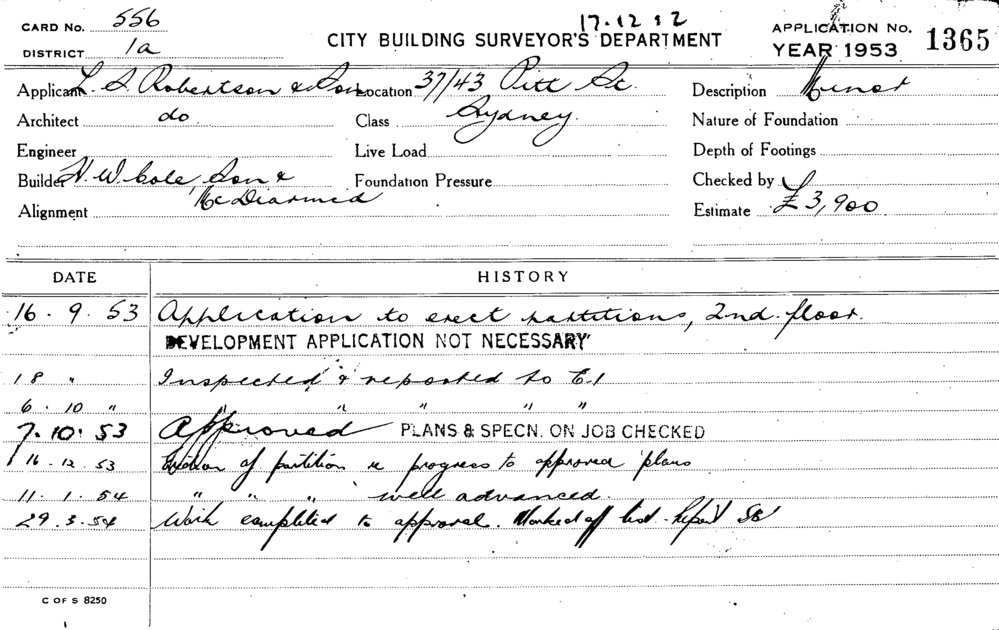 CARD No. 556
17.12.52
APPLICATION No. 1365
DISTRICT 1a
CITY BUILDING SURVEYOR'S DEPARTMENT
YEAR 1953
Applicant L. S. Robertson & Son Location 37/43 Pitt St. Description Minor
Architect do Class Sydney. Nature of Foundation
Engineer Live Load Depth of Footings
Builder H. W. Cole, Son & Foundation Pressure Checked by
McDiarmid
Alignment Estimate £3,900
DATE HISTORY
16. 9. 53 Application to erect partitions, 2nd. floor.
DEVELOPMENT APPLICATION NOT NECESSARY
18 " Inspected & reported to E.1
6. 10 " " " " " "
7. 10. 53 Approved PLANS & SPECN. ON JOB CHECKED
16. 12. 53 Erection of partition in progress to approved plans
11. 1. 54 " " " well advanced.
29. 3. 54 Work completed to approval. Marked off
C OF S 8250